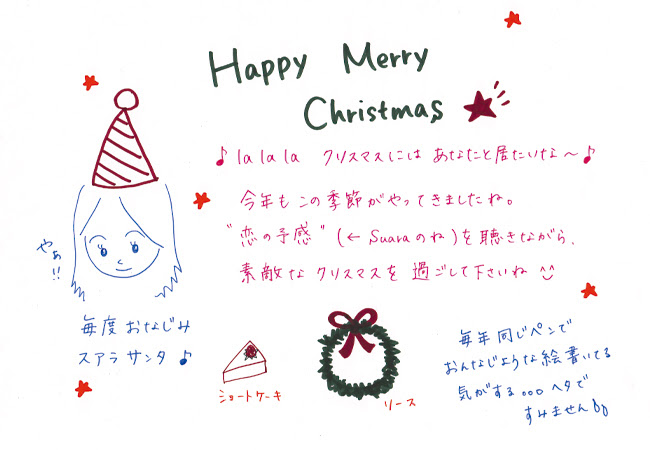 Happy Merry
Christmas
♪ la la la クリスマスには あなたと居たいな〜♪
今年も この季節がやってきましたね。
"恋の予感" (← Suaraのね)を聴きながら、
素敵な クリスマスを 過ごして下さいね
やぁ!!
毎度 おなじみ
スアラ サンタ ♪
ショートケーキ
リース
毎年 同じペンで
おんなじような絵書いてる
気がする。。。ヘタで
すみません